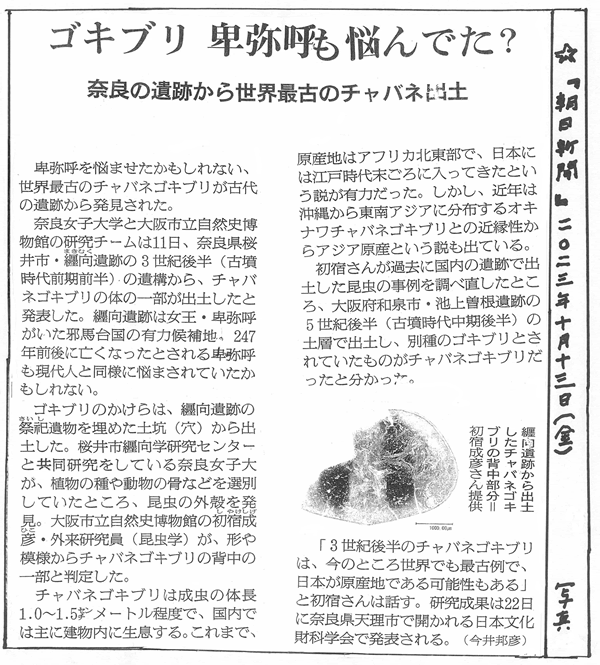 ゴキブリ 卑弥呼も悩んでた？
奈良の遺跡から世界最古のチャバネ出土
卑弥呼を悩ませたかもしれない、
世界最古のチャバネゴキブリが古代
の遺跡から発見された。
奈良女子大学と大阪市立自然史博
物館の研究チームは11日、奈良県桜
井市・纒向遺跡の３世紀後半（古墳
時代前期前半）の遺構から、チャバ
ネゴキブリの体の一部が出土したと
発表した。纒向遺跡は女王・卑弥呼
がいた邪馬台国の有力候補地。247
年前後に亡くなったとされる卑弥呼
も現代人と同様に悩まされていたか
もしれない。
ゴキブリのかけらは、纒向遺跡の
祭祀遺物を埋めた土坑（穴）から出
土した。桜井市纒向学研究センター
と共同研究をしている奈良女子大
が、植物の種や動物の骨などを選別
していたところ、昆虫の外殻を発
見。大阪市立自然史博物館の初宿成
彦・外来研究員（昆虫学）が、形や
模様からチャバネゴキブリの背中の
一部と判定した。
チャバネゴキブリは成虫の体長
1.0～1.5㌢メートル程度で、国内で
は主に建物内に生息する。これまで、
原産地はアフリカ北東部で、日本に
は江戸時代末ごろに入ってきたとい
う説が有力だった。しかし、近年は
沖縄から東南アジアに分布するオキ
ナワチャバネゴキブリとの近縁性か
らアジア原産という説も出ている。
初宿さんが過去に国内の遺跡で出
土した昆虫の事例を調べ直したとこ
ろ、大阪府和泉市・池上曽根遺跡の
５世紀後半（古墳時代中期後半）の
土層で出土し、別種のゴキブリとさ
れていたものがチャバネゴキブリだ
ったと分かった。
纒向遺跡から出土
したチャバネゴキ
ブリの背中部分＝
初宿成彦さん提供
1000.00μm
「３世紀後半のチャバネゴキブリ
は、今のところ世界でも最古例で、
日本が原産地である可能性もある」
と初宿さんは話す。研究成果は22日
に奈良県天理市で開かれる日本文化
財科学会で発表される。（今井邦彦）
☆『朝日新聞』二〇二三年十月十三日（金）
［写真